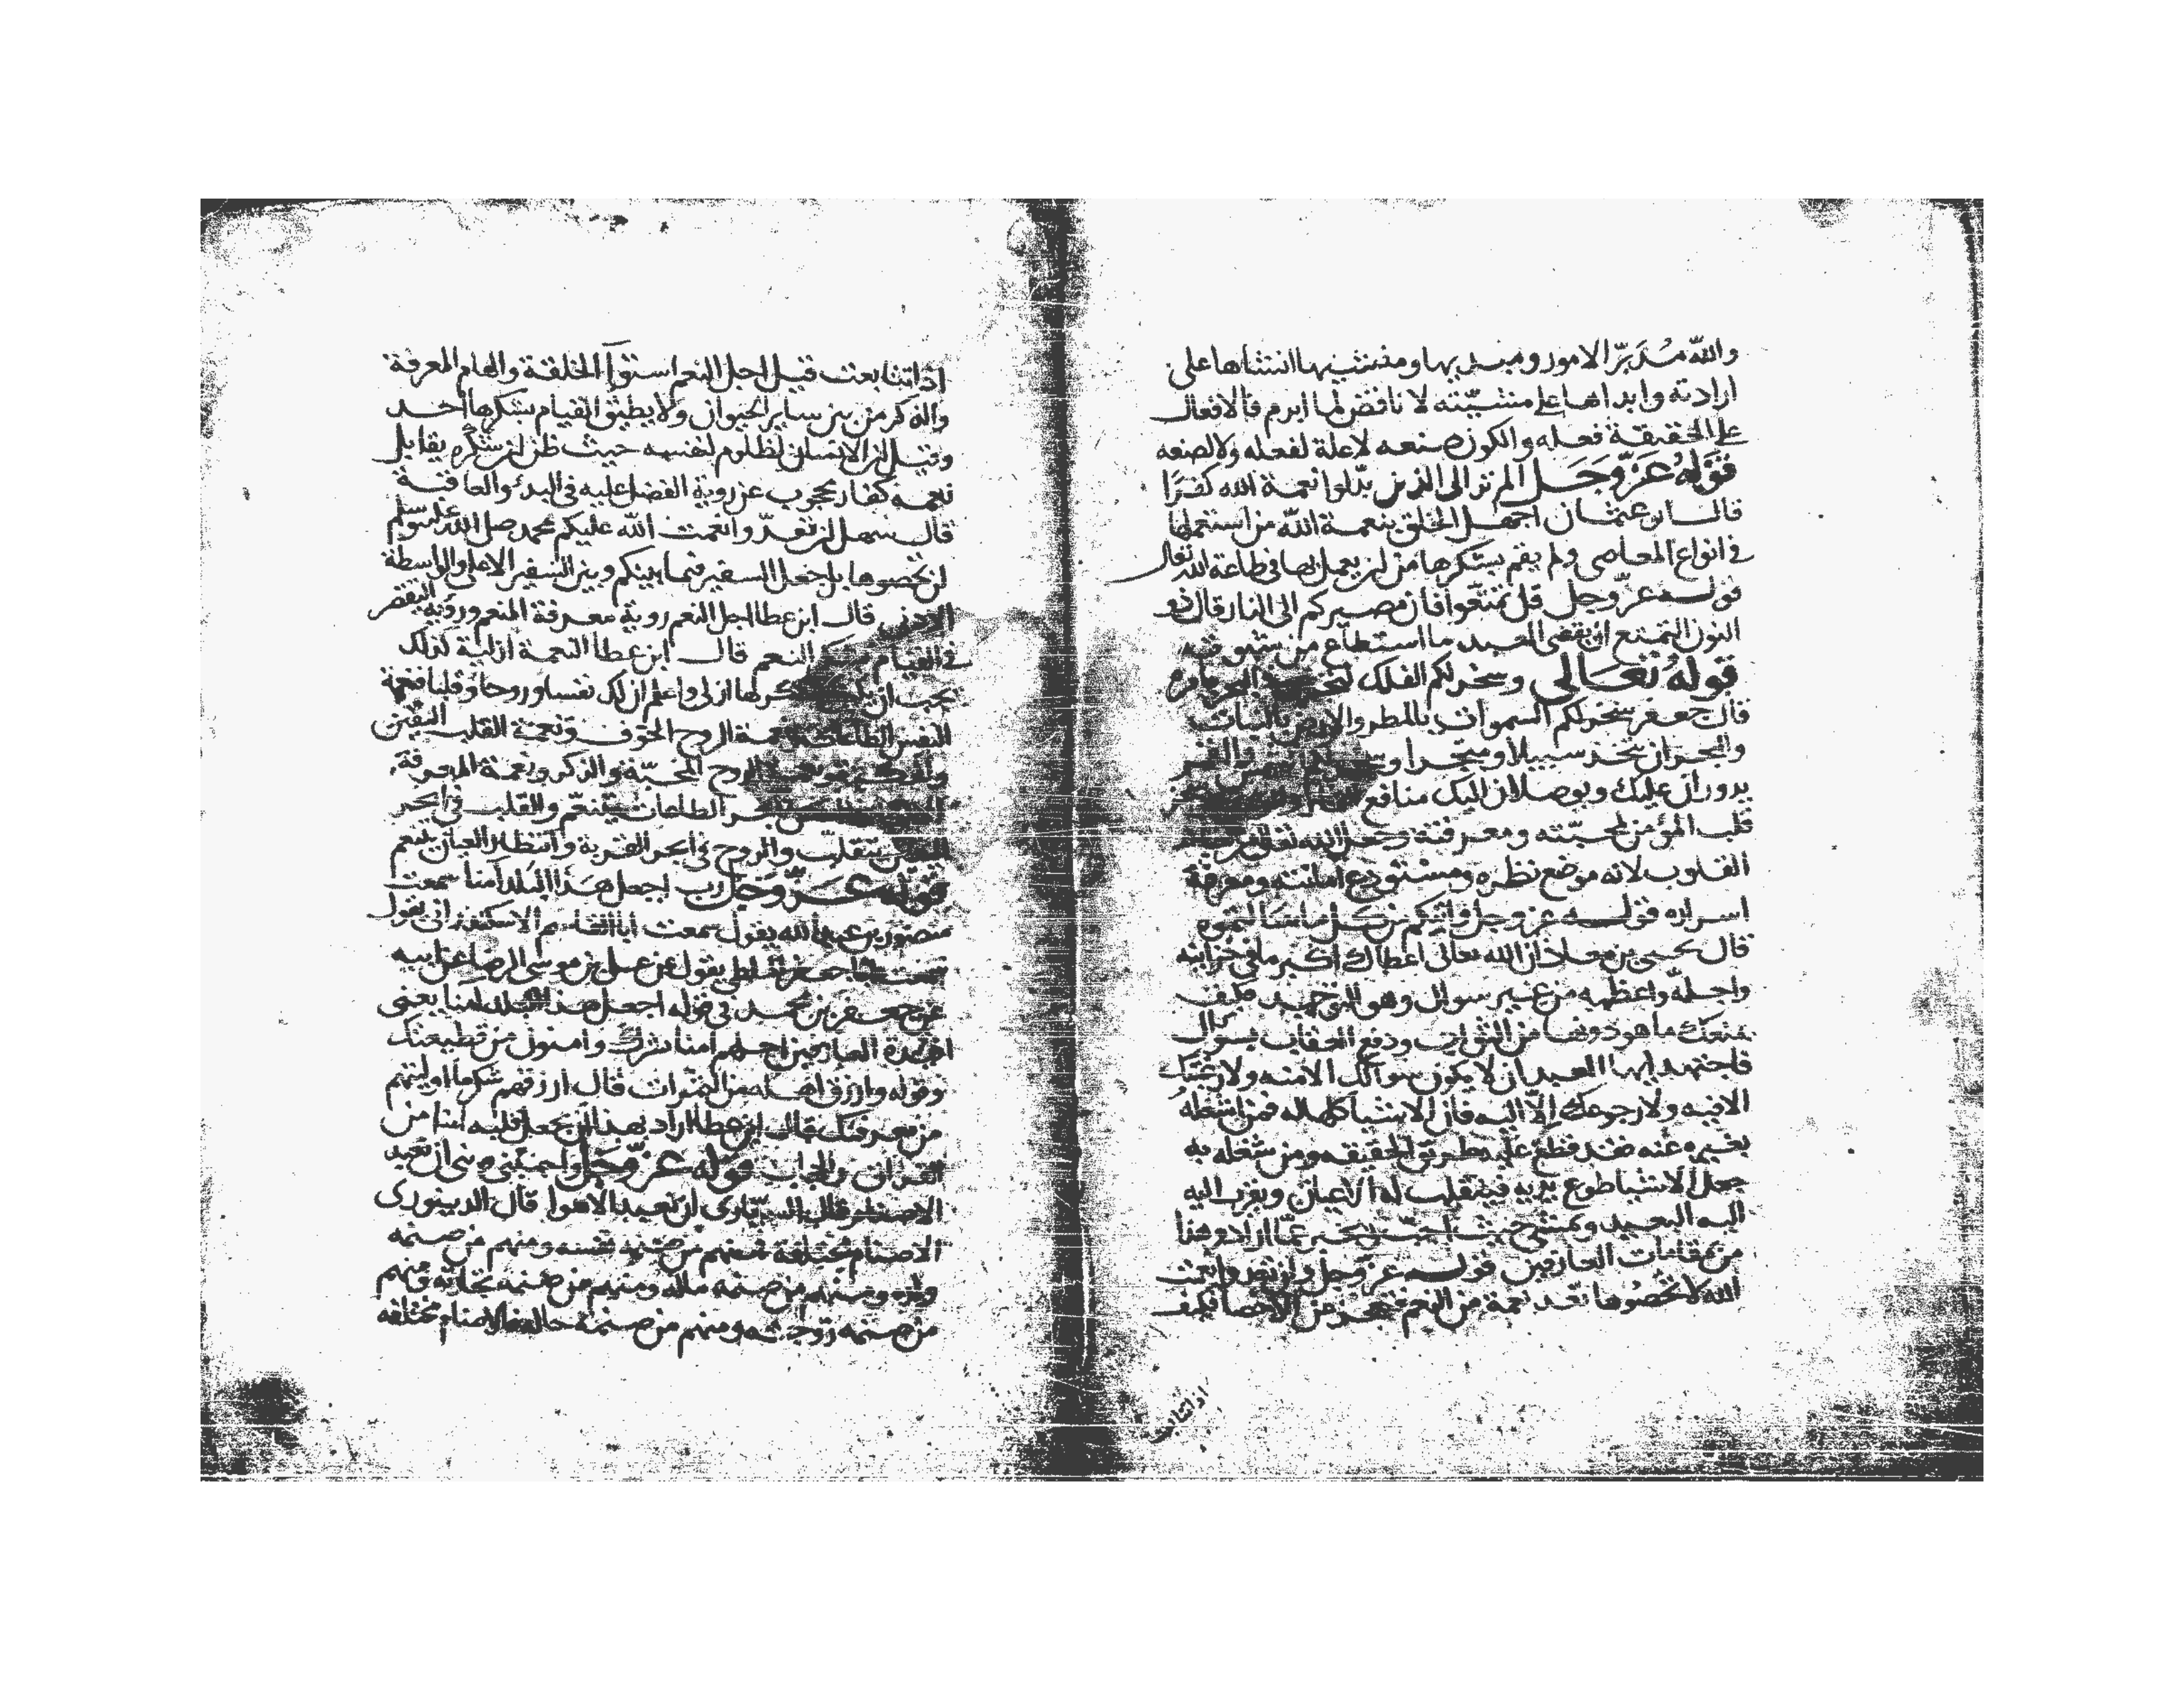 والله مدبر الامور ومبديها ومنشيها انشاها على
ارادته وابداها على مشيته لا ناقض لما ابرم فالافعال
على الحقيقة فعله والكون صنعه لا علة لفعله ولا لصنعه
قوله عز وجل الم تر الى الذين بدلوا نعمة الله كفرا
قال ابو عثمان اجهل الخلق بنعمة الله من استعملها
في انواع المعاصي ولم يقم بشكرها من لم يعمل بها في طاعة الله تعالى
قوله عز وجل قل تمتعوا فان مصيركم الى النار قال ذو
النون التمتع ان يقضي العبد ما استطاع من شهوته
قوله تعالى وسخر لكم الفلك لتجري في البحر بامره
قال جعفر سخر لكم السموات بالمطر والارض بالنبات
والبحر ان يتخذ سبيلا ومتجرا وسخر لكم الشمس والقمر
يدوران عليك ويوصلان اليك منافع
قلب المؤمن لمحبته ومعرفته وحظ الله تعالى من
القلوب لانه موضع نظره ومستودع امانته ومعرفة
اسراره قوله عز وجل واتيكم من كل ما سالتموه
قال يحيى بن معاذ ان الله تعالى اعطاك اكبر ما في خزاينه
واجله واعظمه من غير سوال وهو التوحيد فكيف
يمنعك ما هو دونها من الثواب ودفع العقاب بسوال
فاجتهد ايها العبد ان لا يكون سوالك الا منه ولا رغبتك
الا فيه ولا رجوعك الا اليه فان الاشيا كلها له فمن اشغله
بغيره عنه فقد قطع عليه طريق الحقيقه ومن شغله به
جعل الاشيا طوع يديه فينقلب له الاعيان ويقرب اليه
اليه البعيد ويمشي حيث احب ويخبر عما اراد وهذا
من مقامات العارفين قوله عز وجل وان تعدوا نعمت
الله لا تحصوها نعد نعمة من النعم فنعجز عن الاحصا فكيف
اذا تتابعت
اذا تتابعت قيل اجل النعم استوا الخلقة والهام المعرفة
والذكر من بين ساير الحيوان ولا يطيق القيام بشكرها احد
وقيل ان الانسان لظلوم لنفسه حيث ظن ان شكره يقابل
نعمه كفار محجوب عن روية الفضل عليه في البدء والعاقبة
قال سهل ان تعدوا نعمت الله عليكم محمد صلى الله عليه وسلم
لن تحصوها بان جعل السفير فيما بينكم وبين السفير الاعلى والواسطة
الادنى قال ابن عطا اجل النعم روية معرفة المنعم وروية التقصير
في القيام بشكر النعم قال ابن عطا النعمة ازلية كذلك
يجب ان يكون شكرها ازلي واعلم ان لك نفسا وروحا وقلبا فنعمة
النفس الطاعات ونعمة الروح الخوف ونعمة القلب اليقين
الروح المحبة والذكر ونعمة المعرفة
بحر الطاعات يتنعم والقلب في بحر
يتقلب والروح في بحر القربة وانتظار العيان يتنعم
قوله عز وجل رب اجعل هذا البلد آمنا سمعت
منصور بن عبد الله يقول سمعت ابا القاسم الاسكندراني يقول
سمعت ابا جعفر الملطي يقول عن علي بن موسى الرضا عن ابيه
عن جعفر بن محمد في قوله اجعل هذا البلد امنا يعني
افئدة العارفين اجعلهم امنا سرك وامنون من قطيعتك
وقوله وارزق اهله من الثمرات قال ارزقهم شكر ما اوليتهم
من معرفتك قال ابن عطا اراد بهذا ان يجعل قلبه امنا من
الفراق والحجاب قوله عز وجل واجنبني وبني ان نعبد
الاصنام قال السياري ان نعبد الاهوا قال الدينوري
الاصنام مختلفة فمنهم من صنمه نفسه ومنهم من صنمه
ولده ومنهم من صنمه ماله ومنهم من صنمه تجارته ومنهم
من صنمه زوجته ومنهم من صنمه حاله فالاصنام مختلفه